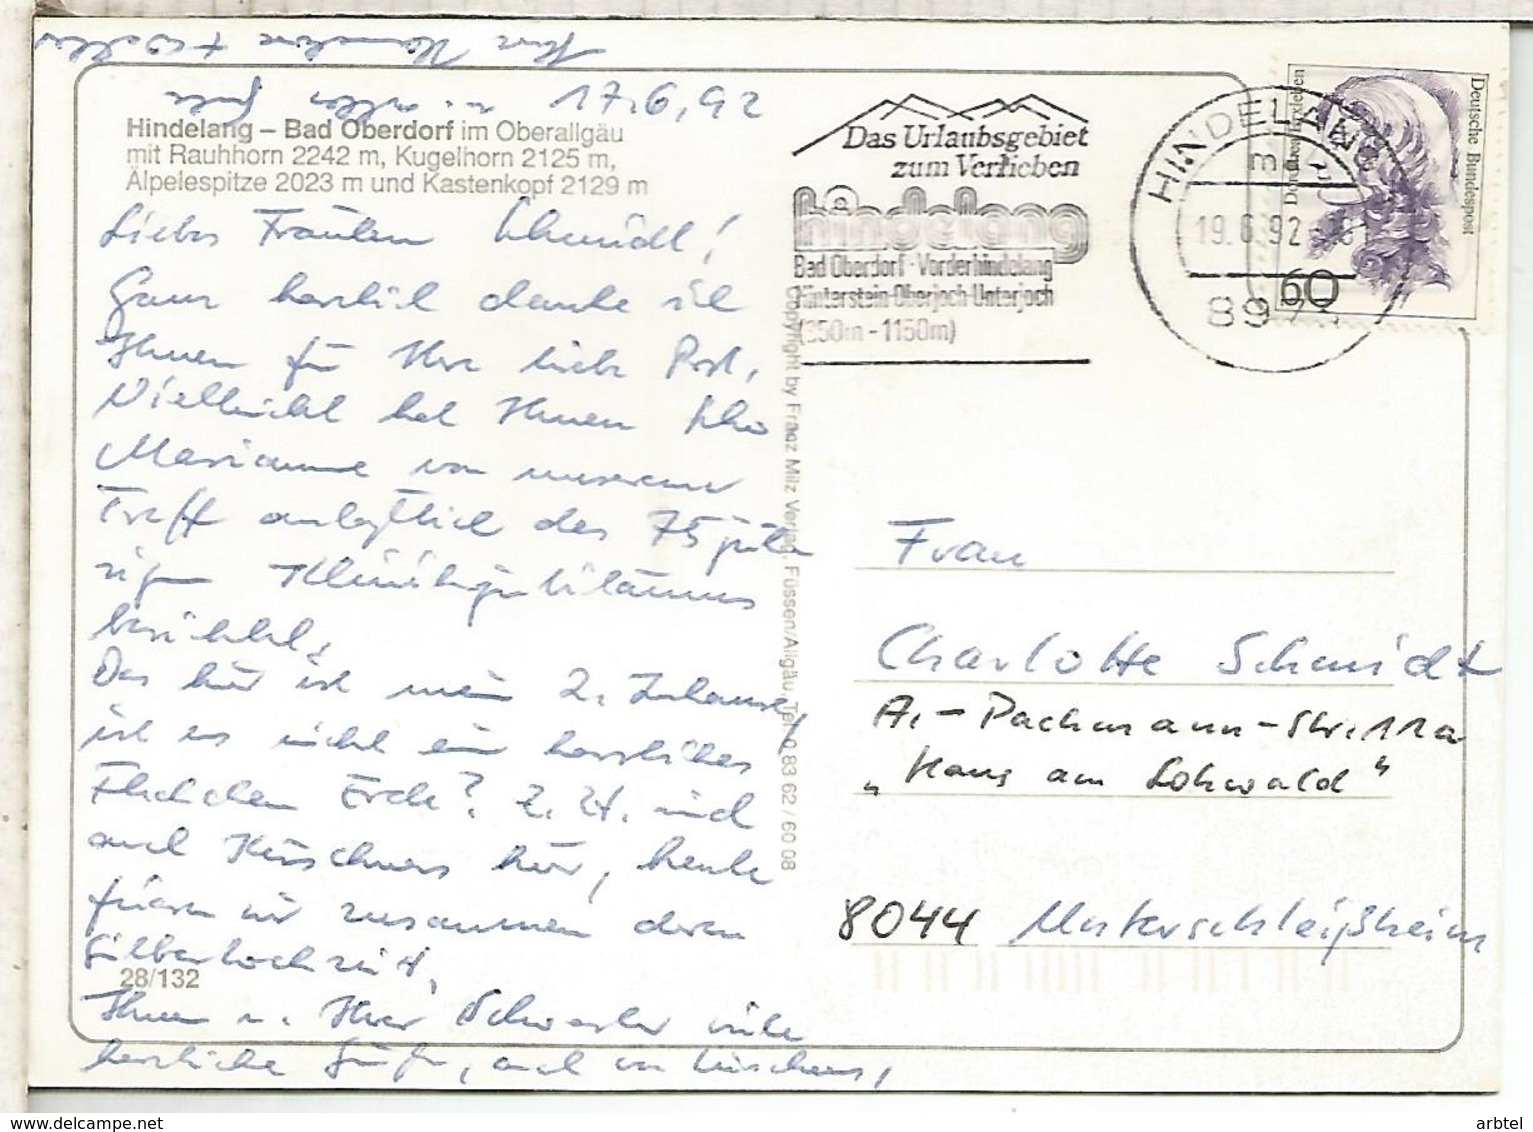 17.6.92
Hindelang – Bad Oberdorf im Oberallgäu
mit Rauhhorn 2242 m, Kugelhorn 2125 m,
Älpelespitze 2023 m und Kastenkopf 2129 m
Liebes Fräulein Schmidt!
Ganz herzlich danke ich
Ihnen für Ihre liebe Post.
Vielleicht hat Ihnen scho
Marianne von unserem
Treff anläßlich des 75 jähr
igen Klinikjubiläums
berichtet.
Das hier ist mein 2. Zuhause,
ist es nicht ein herrliches
Fleckchen Erde? Z. Zt. sind
auch Kirschners hier, heute
feiern wir zusammen deren
Silberhochzeit.
28/132
Ihnen u. Ihrer Schwester viele
herzliche Grüße, auch von Kirschners,
Ihre
Copyright by Franz Milz Verlag, Füssen/Allgäu, Tel. 0 83 62 / 60 08
Das Urlaubsgebiet
zum Verlieben
hindelang
Bad Oberdorf · Vorderhindelang
Hinterstein·Oberjoch·Unterjoch
(850m - 1150m)
HINDELANG
19.6.92
897
Deutsche Bundespost
60
Frau
Charlotte Schmidt
A.-Pachmann-Str. 11a
„Haus am Lohwald"
8044 Unterschleißheim
arbtel